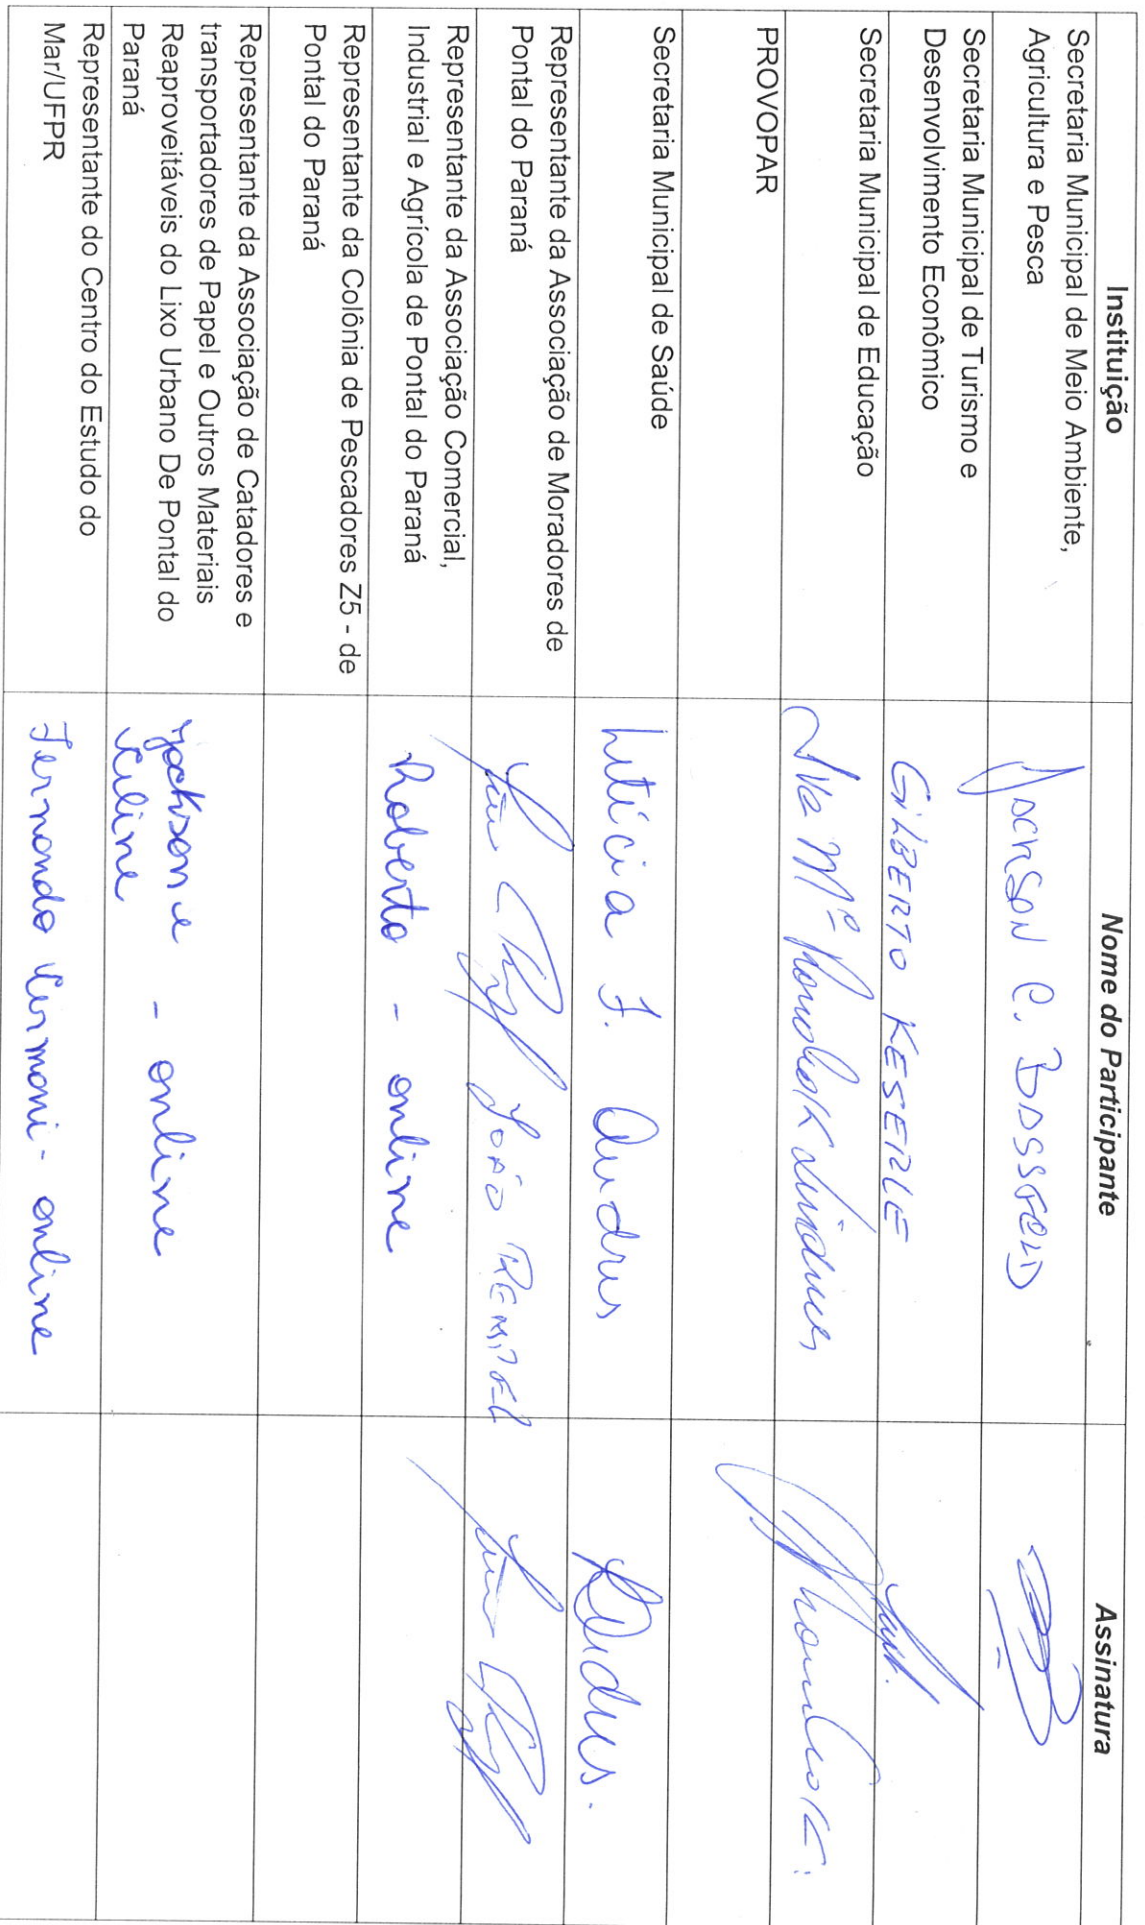 Instituição
Nome do Participante
Assinatura
Secretaria Municipal de Meio Ambiente,
Agricultura e Pesca
JACKSON C. BASSFELD
Secretaria Municipal de Turismo e
Desenvolvimento Econômico
GILBERTO KESERLE
Secretaria Municipal de Educação
Mª
PROVOPAR
Secretaria Municipal de Saúde
Letícia F.
Representante da Associação de Moradores de
Pontal do Paraná
JOÃO REMPEL
Representante da Associação Comercial,
Industrial e Agrícola de Pontal do Paraná
Roberto - online
Representante da Colônia de Pescadores Z5 - de
Pontal do Paraná
Representante da Associação de Catadores e
transportadores de Papel e Outros Materiais
Reaproveitáveis do Lixo Urbano De Pontal do
Paraná
Jackson e
- online
Representante do Centro do Estudo do
Mar/UFPR
Fernando - online